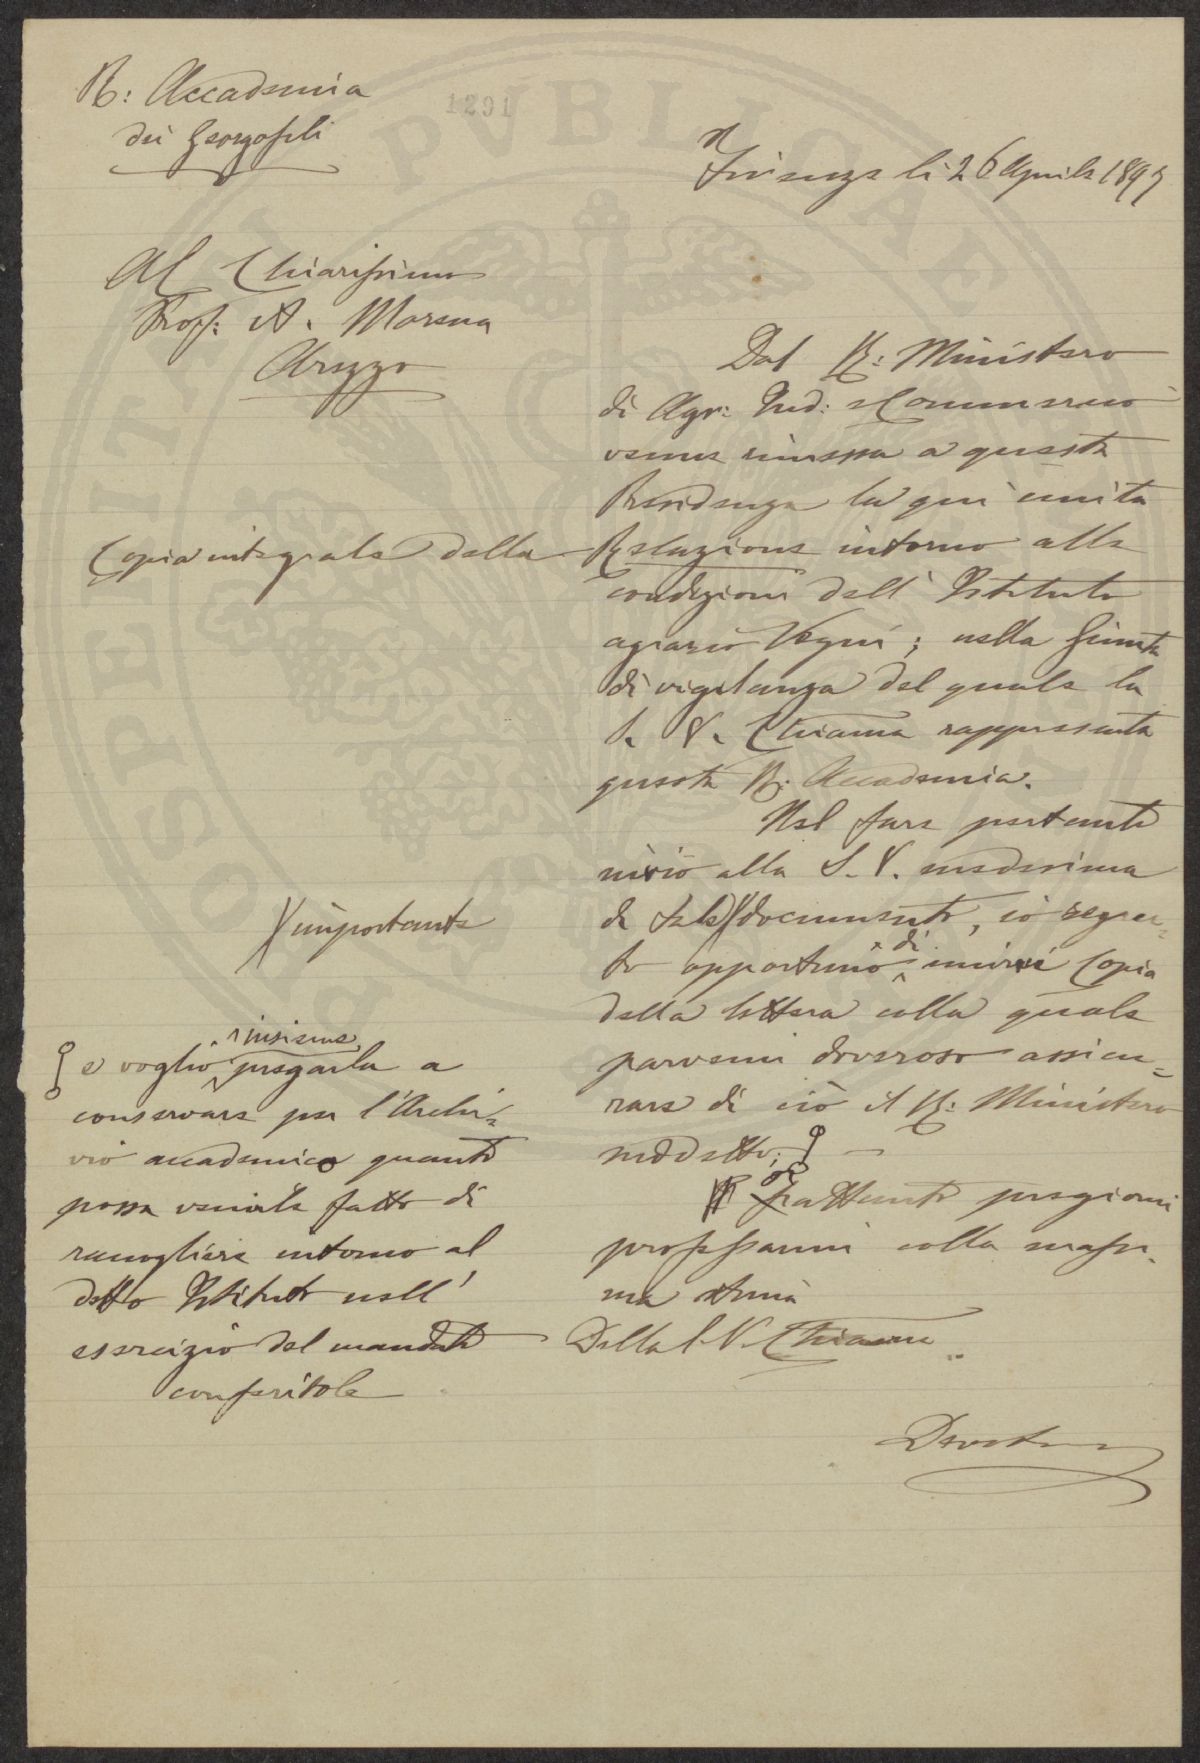 R: Accademia
dei Georgofili
1291
Firenze lì 26 Aprile 1897
Al Chiarissimo
Prof: A. Morena
Arezzo
Dal R: Ministero
di Agr: Ind: e Commercio
venne rimessa a questa
Presidenza la qui unita
Copia integrale della Relazione intorno alle
condizioni dell' Istituto
agrario Vegni; nella Giunta
di vigilanza del quale la
S. V. Chiarma rappresenta
questa R. Accademia.
Nel fare pertanto
invio alla S. V. medesima
importante
di tale documento, io
opportuno di unirvi Copia
della lettera colla quale
parvemi doveroso assicu=
rare di ciò il R: Ministero
suddetto;
e voglio insieme pregarla a
conservare per l'Archi=
vio accademico quanto
possa venirle fatto di
raccogliere intorno al
detto Istituto nell'
esercizio del mandato
conferitole
Frattanto pregiomi
professarmi colla massi-
ma stima
Della S. V. Chiarma
Devotmo
PVBLICAE PROSPERITATI